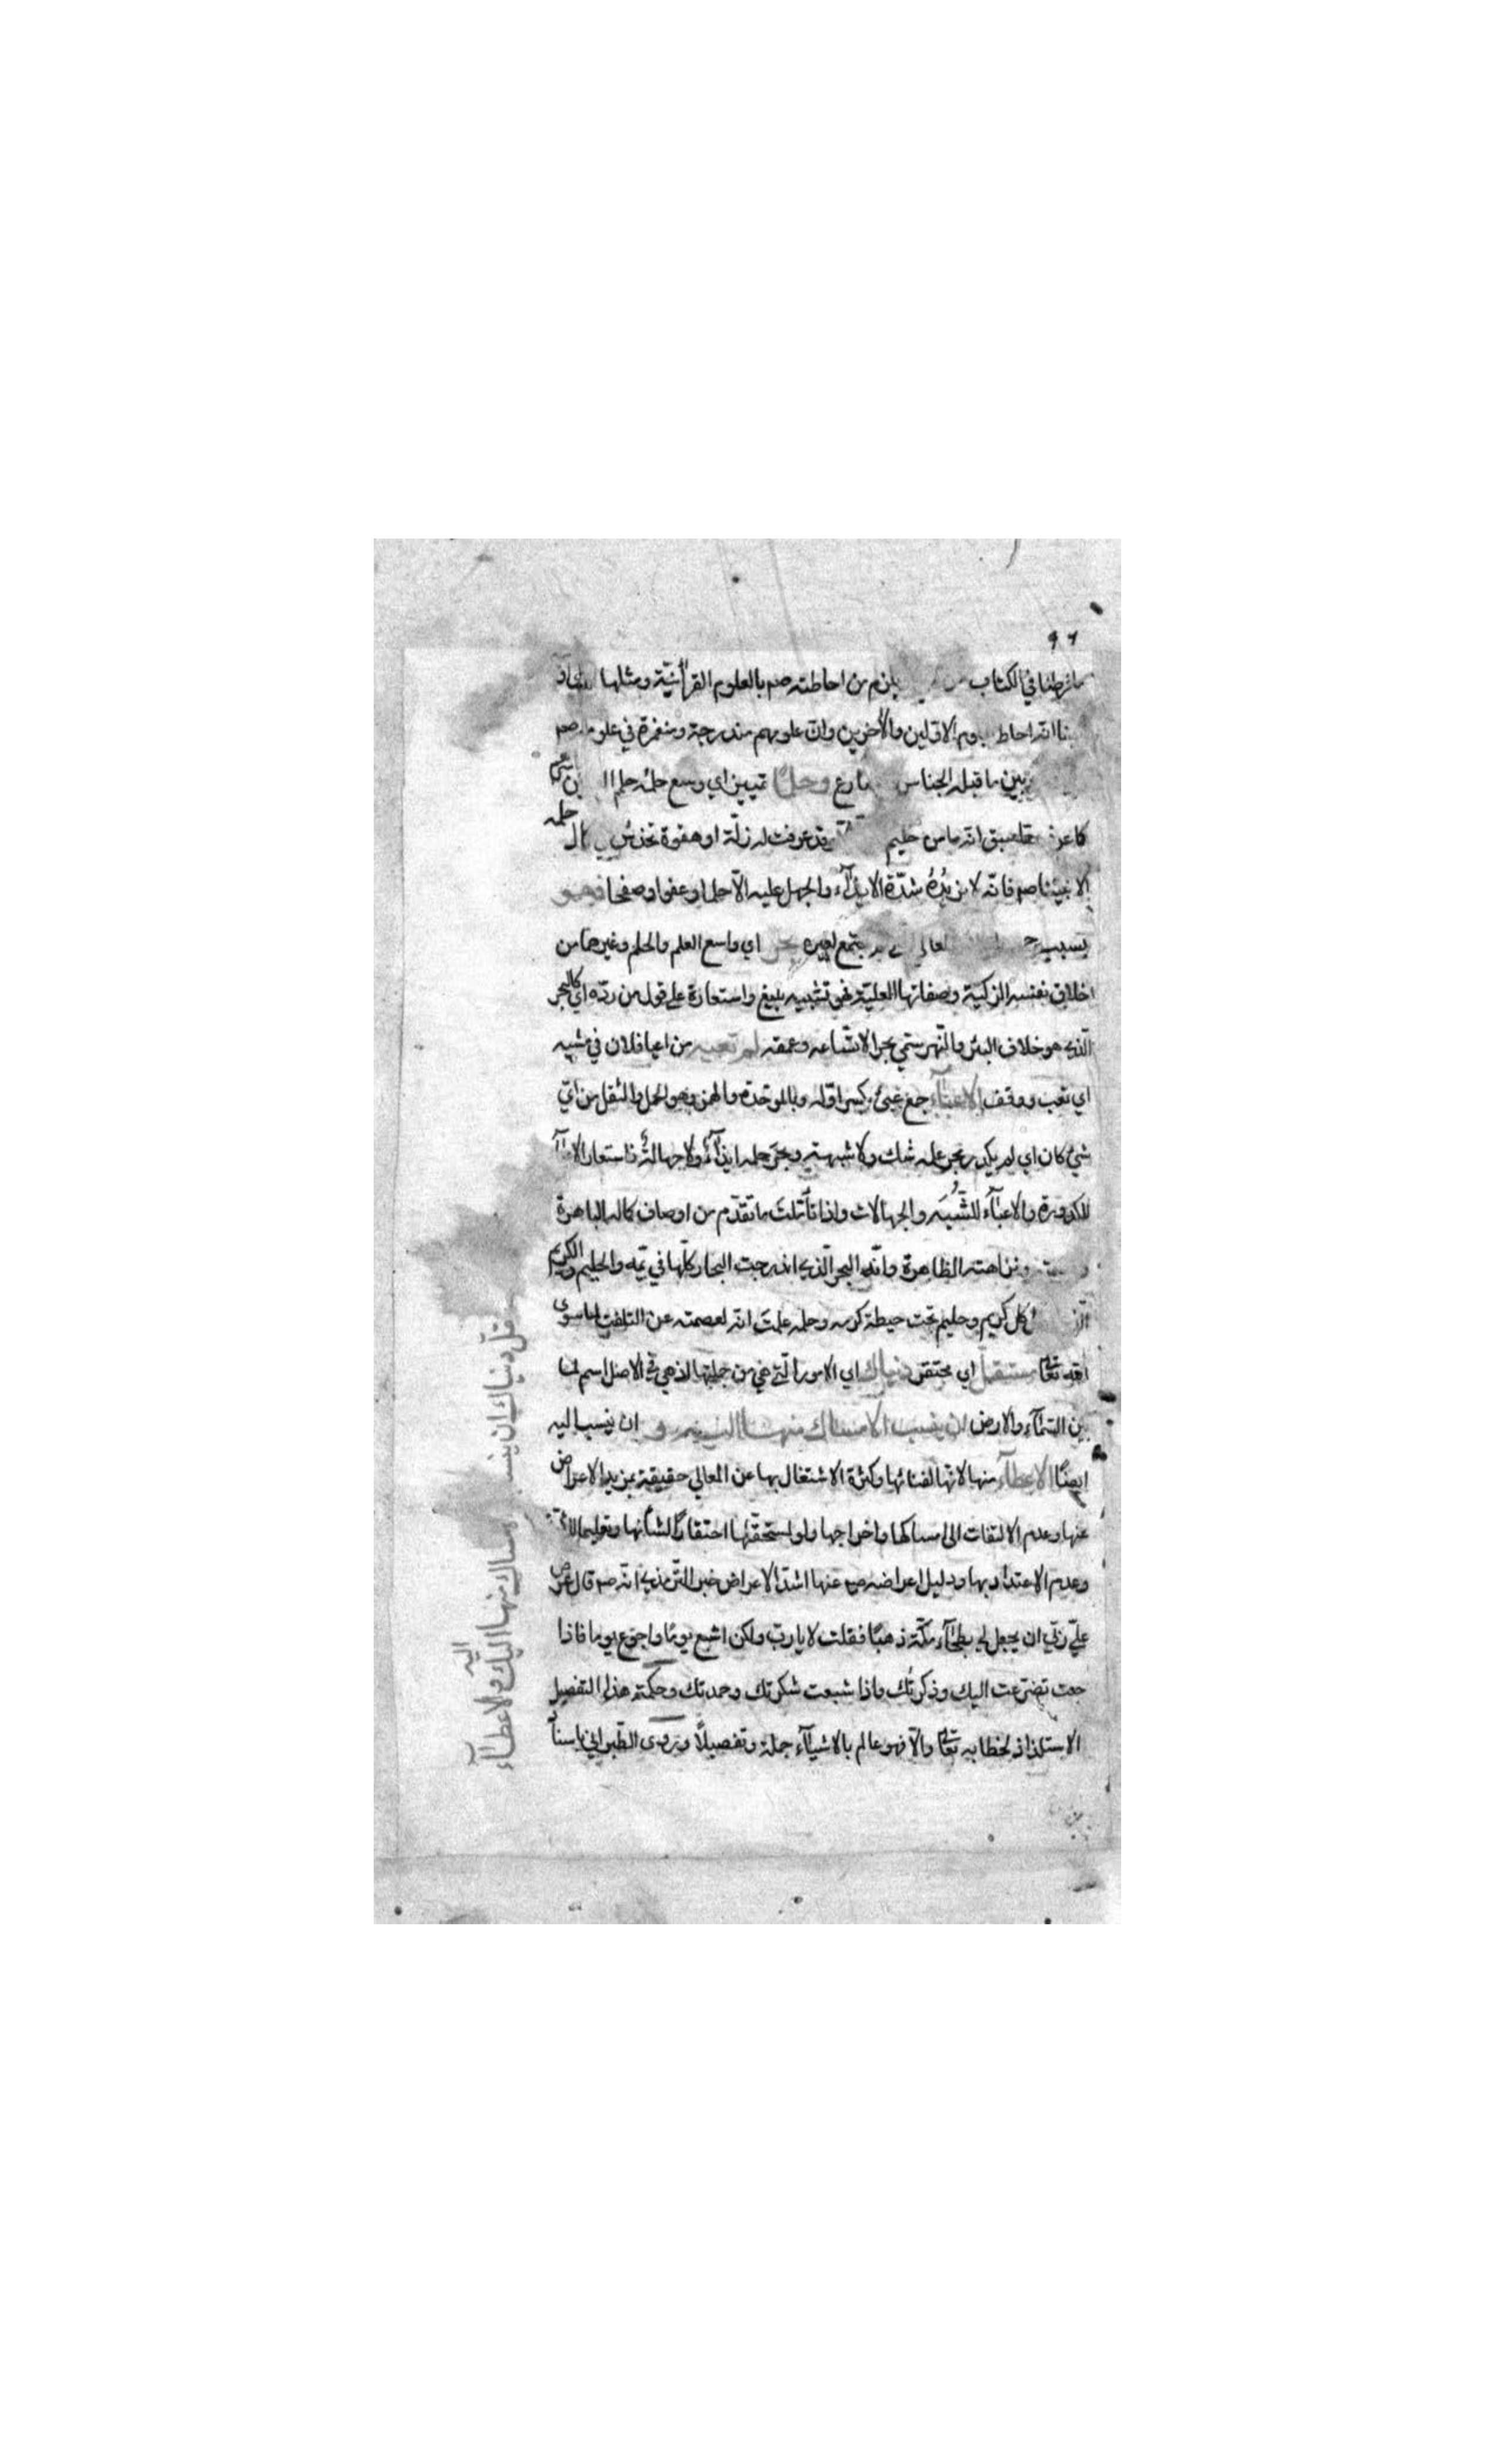 ٩٦
ما فرطنا في الكتاب من يلزم من احاطته صم بالعلوم القرآنيّة ومثلها
انه احاط الاوّلين والآخرين وانّ علومهم مندرجة ومنغمرة في علومه صم
بين ما قبله الجناس وحلمًا تمييز اي وسع حلمُه حلم
انه ما من حليم قد عرفت له زلّة او هفوة تخدش حلمه
الا نبيّنا صم فانّه لا تزيدُهُ شدّة الايذآء والجهل عليه الّا حلما وعفوا وصفحا فهو
بسبب لغيره بحر اي واسع العلم والحلم وغيرهما من
اخلاق نفسه الزكيّة وصفاتها العليّة فهو تشبيه بليغ واستعارة على قول من ردّه اي كالبحر
الّذي هو خلاف البرّ والنّهر سمّي بحرا لاتّساعه وعمقه لم تعيه من اعيا فلان في مشيه
اي تعب ووقف الاعبآء جمع عبئ بكسر اوّله وبالموحّدة والهمز وهو الحمل والثقل من ايّ
شئ كان اي لم يكدر بحر علمه شك ولا شبهة وبحر حلمه ايذآءٌ ولا جهالةٌ فاستعار
للكدورة والاعبآء للشُّبَه والجهالات واذا تأمّلتَ ما تقدّم من اوصاف كماله الباهرة
ونزاهته الظاهرة وانّه البحر الّذي اندرجت البحار كلّها في يمّه والحليم والكريم
كل كريم وحليم تحت حيطة كرمه وحلمه علمتَ انّه لعصمته عن التلفّت لما سوى
الله تعالى مستقلّ اي محتقر دنياك اي الامور الّتي هي من جملتها اذ هي في الاصل اسم لما
بين السّمآء والارض ان ينسب الامساك منها اليه و ان ينسب اليه
ايضًا الاعطآء منها لانّها لفنائها وكثرة الاشتغال بها عن المعالي حقيقة بمزيد الاعراض
عنها وعدم الالتفات الى امساكها واخراجها ولو لمستحقّها احتقارًا لشأنها وتعليما
وعدم الاعتداد بها ودليل اعراضه صم عنها اشدّ الاعراض خبر التّرمذي انّه صم قال عرض
عليّ ربّي ان يجعل لي بطحآء مكّة ذهبًا فقلت لا يا ربّ ولكن اشبع يومًا واجوع يوما فاذا
جعت تضرّعت اليك وذكرتُك واذا شبعت شكرتك وحمدتك وحكمة هذا التفصيل
الاستلذاذ لخطابه تعالى والّا فهو عالم بالاشيآء جملة وتفصيلًا وروى الطّبراني
دنياك ان الامساك منها اليك والاعطآء
اليه